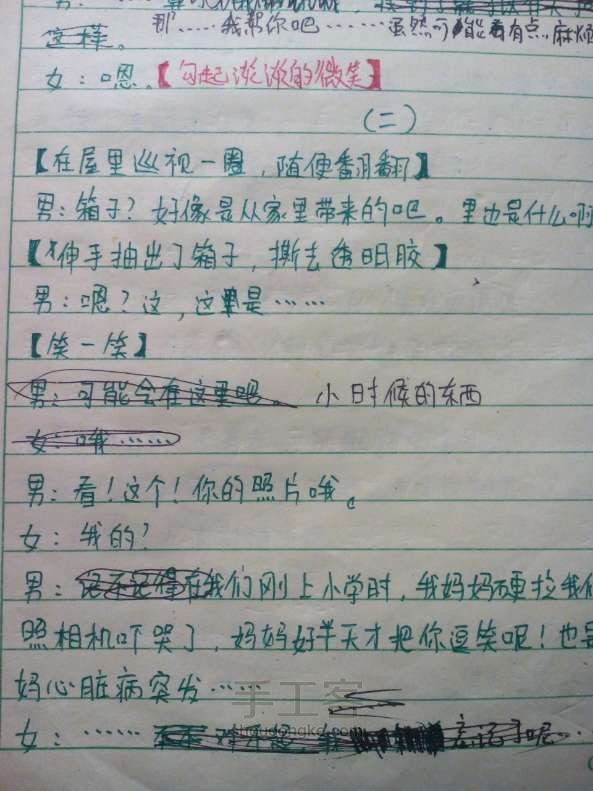 那……我帮你吧……虽然可能有点麻烦
这样。
女：嗯。【勾起淡淡的微笑】
（二）
【在屋里巡视一圈，随便翻翻】
男：箱子？好像是从家里带来的吧。里也是什么啊
【伸手抽出了箱子，撕去透明胶】
男：嗯？这，这是……
【笑一笑】
男：可能会在这里吧。 小时候的东西
女：哦……
男：看！这个！你的照片哦。
女：我的？
男：记不记得在我们刚上小学时，我妈妈硬拉我们
照相机吓哭了，妈妈好半天才把你逗笑呢！也是
妈心脏病突发……
手工客
shougongke.com
女：…… 忘记了呢…